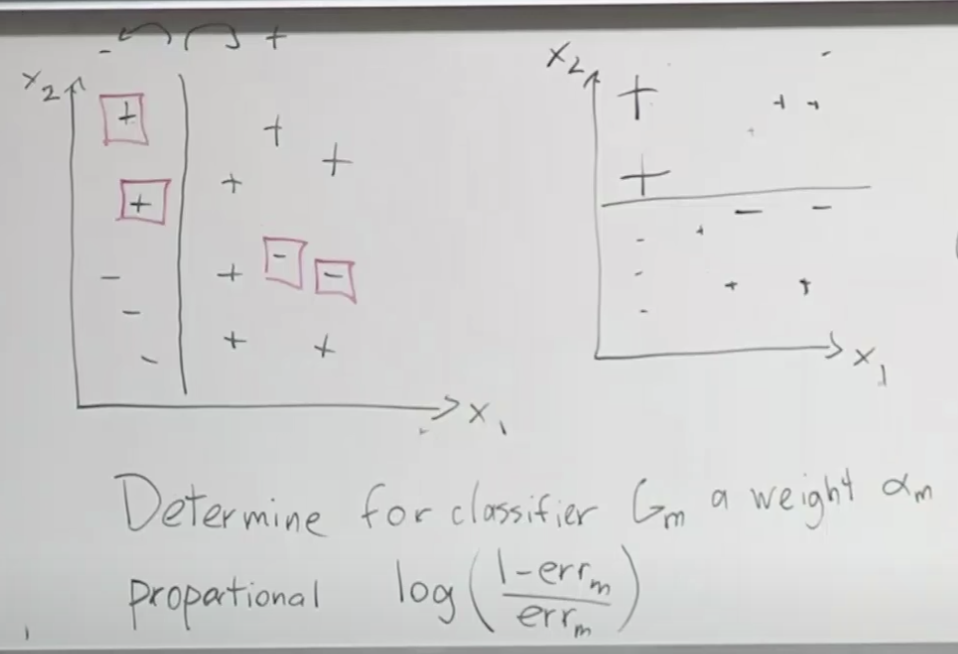 - +
x₂ x₂
+ + + + + +
+ +
+ + - -
- + - -
- - + +
- + + -
-
x₁ x₁
Determine for classifier Gₘ a weight αₘ
proportional log(1-errₘ/errₘ)